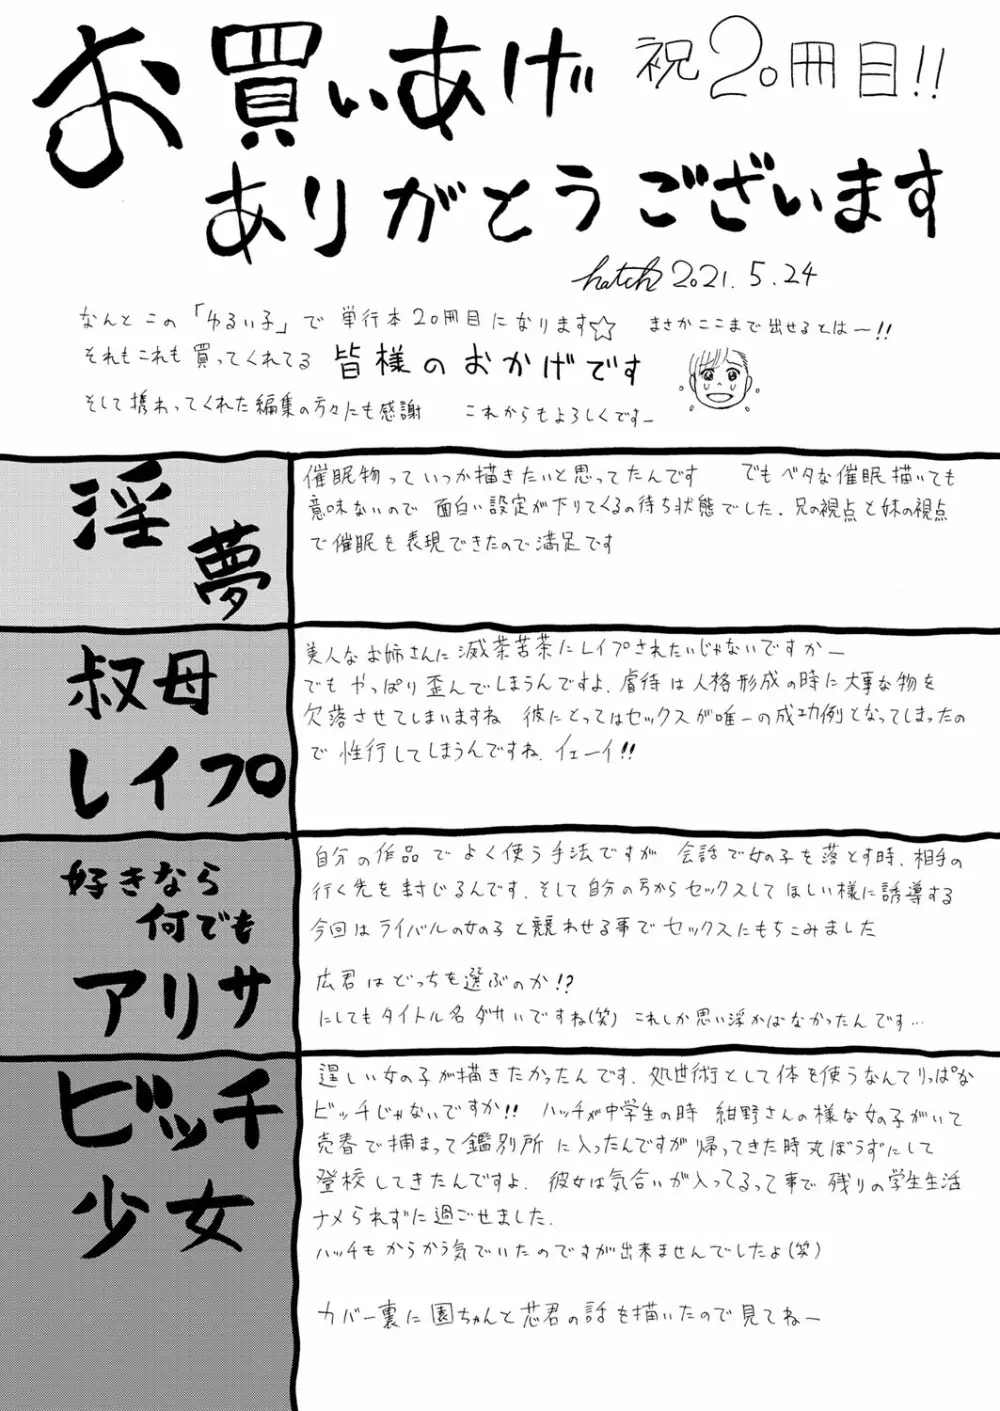 お買いあげ 祝20冊目!!
ありがとうございます
hatch 2021.5.24
なんと この「ゆるい子」で 単行本20冊目になります☆ まさかここまで出せるとはー!!
それもこれも買ってくれてる 皆様のおかげです
そして携わってくれた編集の方々にも感謝 これからもよろしくですー
淫夢
催眠物って いつか描きたいと思ってたんです でもベタな催眠描いても
意味ないので 面白い設定が下りてくるの待ち状態でした. 兄の視点と妹の視点
で催眠を表現できたので満足です
叔母
レイプ
美人なお姉さんに滅茶苦茶にレイプされたいじゃないですかー
でも やっぱり歪んでしまうんですよ. 虐待は人格形成の時に大事な物を
欠落させてしまいますね 彼にとってはセックスが唯一の成功例となってしまったの
で 性行してしまうんですね. イェーイ!!
好きなら
何でも
アリサ
自分の作品で よく使う手法ですが 会話で女の子を落とす時. 相手の
行く先を封じるんです. そして自分の方からセックスして ほしい様に誘導する
今回はライバルの女の子と競わせる事でセックスにもちこみました
広君は どっちを選ぶのか!?
にしてもタイトル名ダサいですね(笑) これしか思い浮かばなかったんです…
ビッチ
少女
逞しい女の子が描きたかったんです. 処世術として体を使うなんてりっぱな
ビッチじゃないですか!! ハッチが中学生の時 紺野さんの様な女の子がいて
売春で捕まって鑑別所に入ったんですが帰ってきた時丸ぼうずにして
登校してきたんですよ. 彼女は気合いが入ってるって事で残りの学生生活
ナメられずに過ごせました.
ハッチもからかう気でいたのですが出来ませんでしたよ(笑)
カバー裏に園ちゃんと芯君の話を描いたので見てねー